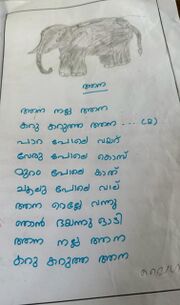 ആന
ആന നല്ല ആന
കറു കറുത്ത ആന --- (2)
പാറ പോലെ വലുത്
വേരു പോലെ കൊമ്പ്
മുറം പോലെ കാത്
ചൂല് പോലെ വാല്
ആന റെല്ലേ വന്നു
ഞാൻ ഓടി
ആന നല്ല ആന
കറു കറുത്ത ആന